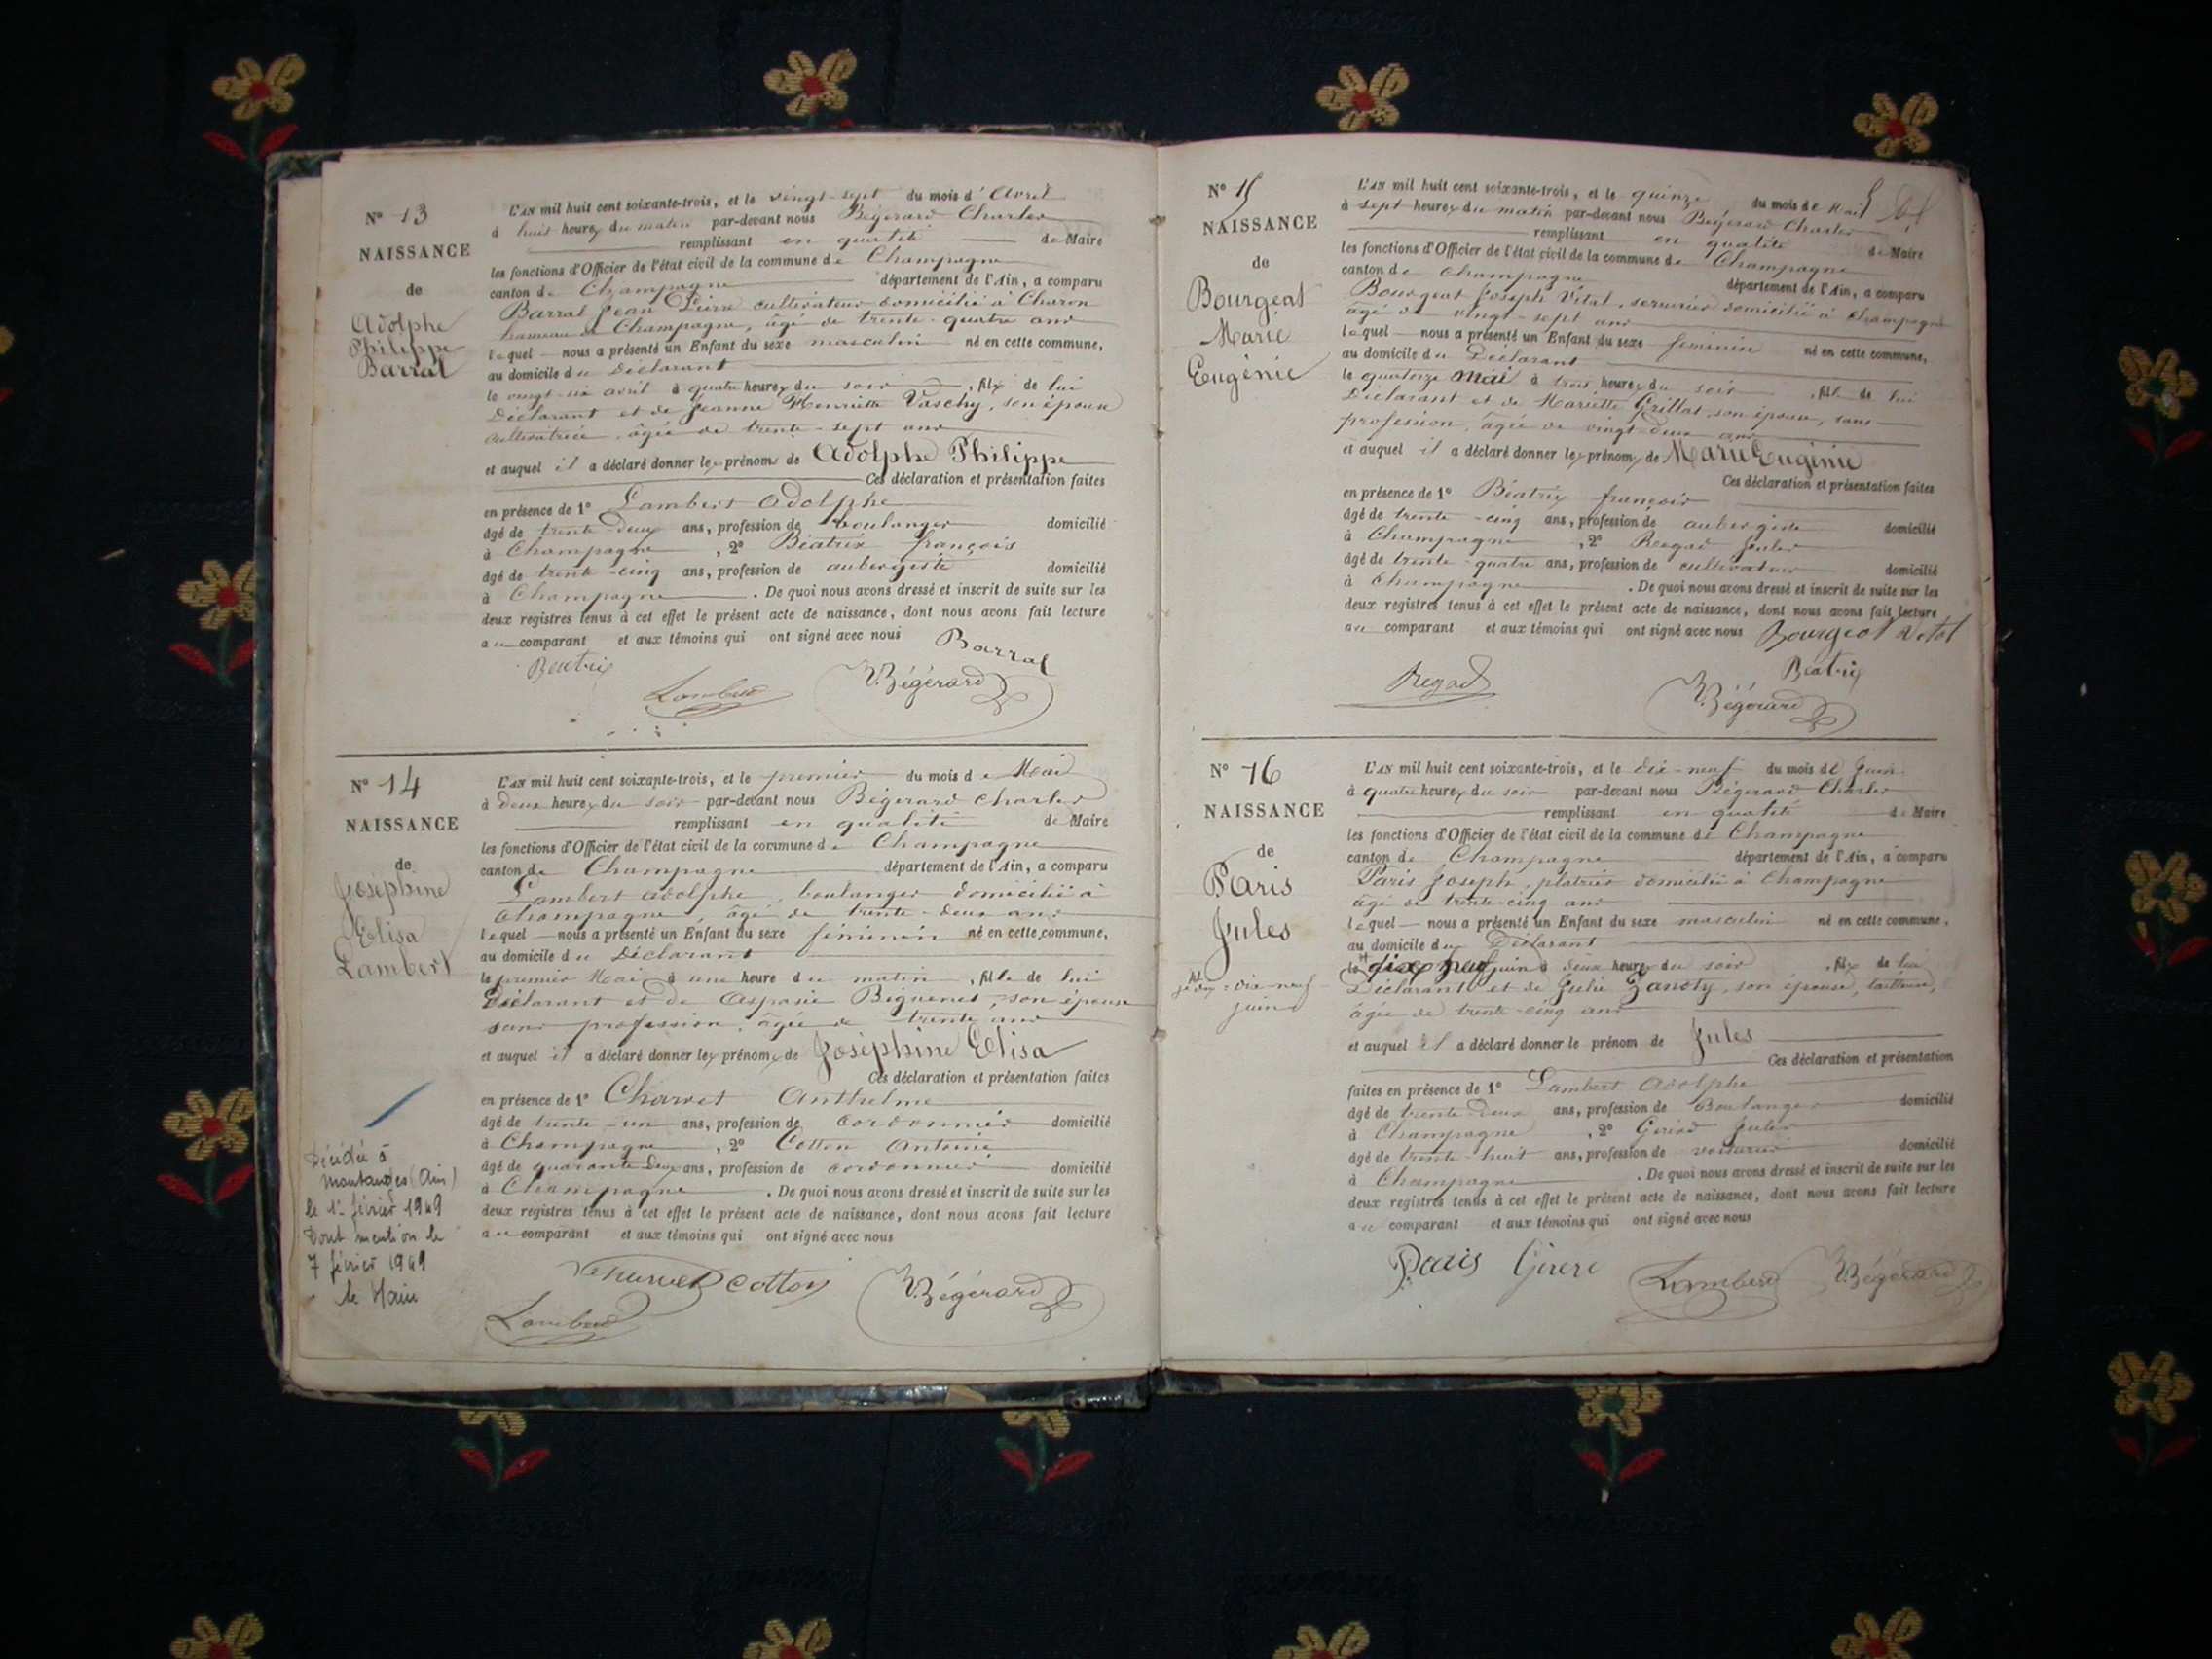 N° 13
NAISSANCE
de
Adolphe
Philippe
Barral
L'AN mil huit cent soixante-trois, et le vingt-sept du mois d'Avril
à huit heures du matin par-devant nous Bégérard Charles
remplissant en qualité de Maire
les fonctions d'Officier de l'état civil de la commune de Champagne
canton de Champagne département de l'Ain, a comparu
Barral Jean Pierre cultivateur domicilié à Charon
hameau de Champagne, âgé de trente-quatre ans
lequel nous a présenté un Enfant du sexe masculin né en cette commune,
au domicile du Déclarant
le vingt-six avril à quatre heures du soir, fils de lui
Déclarant et de Jeanne Henriette Vaschy, son épouse
cultivatrice, âgée de trente-sept ans
et auquel il a déclaré donner les prénoms de Adolphe Philippe
Ces déclaration et présentation faites
en présence de 1° Lambert Adolphe
âgé de trente-deux ans, profession de boulanger domicilié
à Champagne, 2° Béatrix françois
âgé de trente-cinq ans, profession de aubergiste domicilié
à Champagne. De quoi nous avons dressé et inscrit de suite sur les
deux registres tenus à cet effet le présent acte de naissance, dont nous avons fait lecture
au comparant et aux témoins qui ont signé avec nous Barral
Béatrix
Lambert Bégérard
N° 14
NAISSANCE
de
Joséphine
Elisa
Lambert
Décédée à
(Ain)
le 1er février 1949
Dont mention le
7 février 1949
le Maire
L'AN mil huit cent soixante-trois, et le premier du mois de Mai
à deux heures du soir par-devant nous Bégérard Charles
remplissant en qualité de Maire
les fonctions d'Officier de l'état civil de la commune de Champagne
canton de Champagne département de l'Ain, a comparu
Lambert Adolphe, boulanger domicilié à
Champagne, âgé de trente-deux ans
lequel nous a présenté un Enfant du sexe féminin né en cette commune,
au domicile du Déclarant
le premier Mai à une heure du matin, fille de lui
Déclarant et de Aspasie son épouse
sans profession, âgée de trente ans
et auquel il a déclaré donner les prénoms de Joséphine Elisa
Ces déclaration et présentation faites
en présence de 1° Charvet Anthelme
âgé de trente-un ans, profession de cordonnier domicilié
à Champagne, 2° Cotton Antoine
âgé de quarante deux ans, profession de cordonnier domicilié
à Champagne. De quoi nous avons dressé et inscrit de suite sur les
deux registres tenus à cet effet le présent acte de naissance, dont nous avons fait lecture
au comparant et aux témoins qui ont signé avec nous
Charvet Cotton Bégérard
Lambert
N° 15
NAISSANCE
de
Bourgeat
Marie
Eugénie
L'AN mil huit cent soixante-trois, et le quinze du mois de Mai
à sept heures du matin par-devant nous Bégérard Charles
remplissant en qualité de Maire
les fonctions d'Officier de l'état civil de la commune de Champagne
canton de Champagne département de l'Ain, a comparu
Bourgeat Joseph Vital, serrurier domicilié à Champagne
âgé de vingt-sept ans
lequel nous a présenté un Enfant du sexe féminin né en cette commune,
au domicile du Déclarant
le quatorze Mai à trois heures du soir, fille de lui
Déclarant et de Mariette Grillat, son épouse, sans
profession, âgée de vingt-deux ans
et auquel il a déclaré donner les prénoms de Marie Eugénie
Ces déclaration et présentation faites
en présence de 1° Béatrix françois
âgé de trente-cinq ans, profession de aubergiste domicilié
à Champagne, 2° Regad Jules
âgé de trente-quatre ans, profession de cultivateur domicilié
à Champagne. De quoi nous avons dressé et inscrit de suite sur les
deux registres tenus à cet effet le présent acte de naissance, dont nous avons fait lecture
au comparant et aux témoins qui ont signé avec nous Bourgeat Vital
Regad Béatrix
Bégérard
N° 16
NAISSANCE
de
Paris
Jules
dix-neuf
juin
L'AN mil huit cent soixante-trois, et le dix-neuf du mois de Juin
à quatre heures du soir par-devant nous Bégérard Charles
remplissant en qualité de Maire
les fonctions d'Officier de l'état civil de la commune de Champagne
canton de Champagne département de l'Ain, a comparu
Paris Joseph, plâtrier domicilié à Champagne
âgé de trente-cinq ans
lequel nous a présenté un Enfant du sexe masculin né en cette commune,
au domicile du Déclarant
le dix neuf juin à deux heures du soir, fils de lui
Déclarant et de Julie Zanoty, son épouse, tailleuse,
âgée de trente-cinq ans
et auquel il a déclaré donner le prénom de Jules
Ces déclaration et présentation
faites en présence de 1° Lambert Adolphe
âgé de trente-deux ans, profession de Boulanger domicilié
à Champagne, 2° Jules
âgé de trente-huit ans, profession de voiturier domicilié
à Champagne. De quoi nous avons dressé et inscrit de suite sur les
deux registres tenus à cet effet le présent acte de naissance, dont nous avons fait lecture
au comparant et aux témoins qui ont signé avec nous
Paris Lambert Bégérard